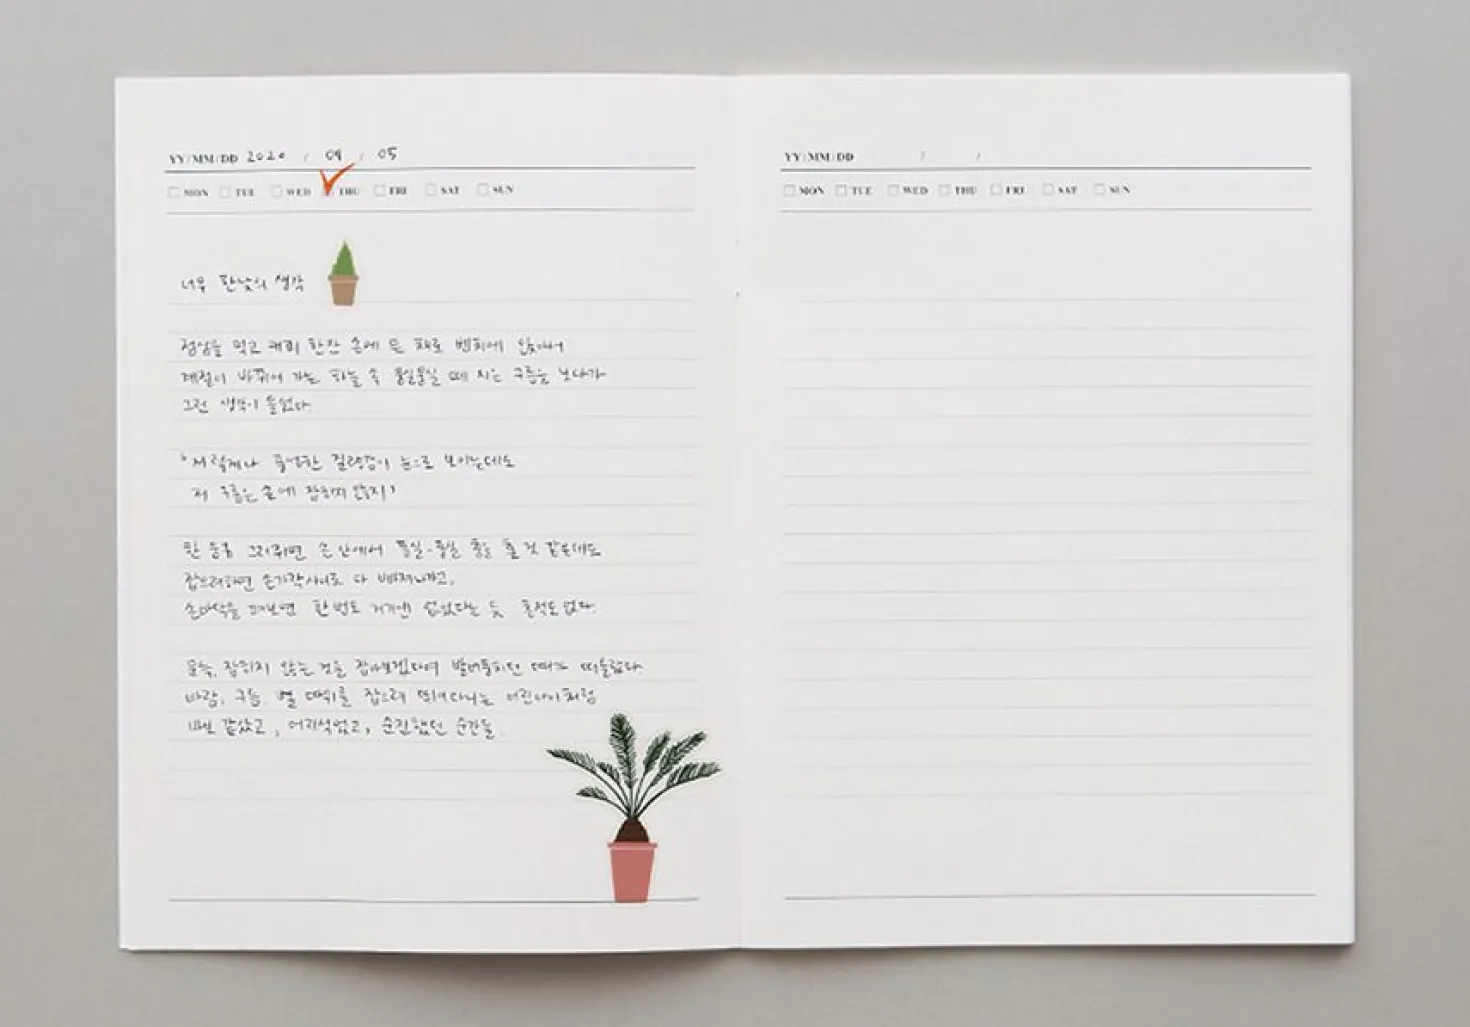 YY/MM/DD 2020 / 09 / 05
MON TUE WED THU FRI SAT SUN
너무 한낮의 생각
점심을 먹고 커피 한잔 손에 든 채로 벤치에 앉아서
계절이 바뀌어 가는 하늘 속 뭉실뭉실 떼 지은 구름을 보다가
그런 생각이 들었다.
'저렇게나 풍성한 질량감이 눈으로 보이는데도
저 구름은 손에 잡히지 않지'
한 움큼 그러쥐면 손 안에서 뭉실-뭉실 춤을 출 것 같은데도
잡으려하면 손가락사이로 다 빠져나가고,
손바닥을 펴보면 한번도 거기엔 없었다는 듯 흔적도 없다.
문득, 잡히지 않는 것을 잡아보겠다며 발버둥치던 때가 떠올랐다.
바람, 구름, 별 따위를 잡으려 뛰어다니는 어린아이처럼
바보 같았고, 어리석었고, 순진했던 순간들.
YY/MM/DD / /
MON TUE WED THU FRI SAT SUN